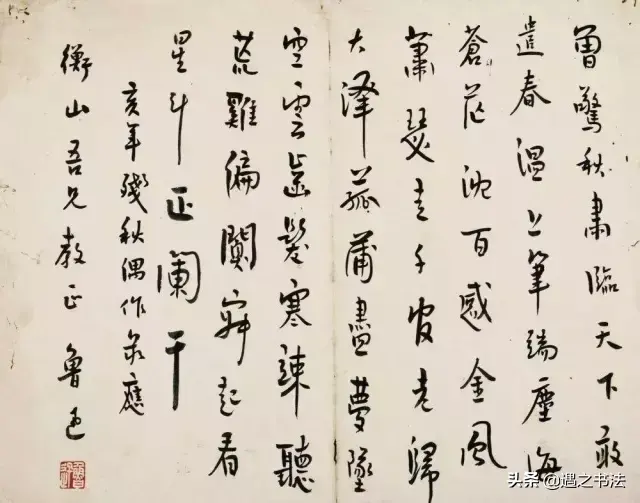 曾驚秋肅臨天下敢
遣春溫上筆端塵海
蒼茫沈百感金風
蕭瑟走千官老歸
大澤菰蒲盡夢墜
空雲齒髮寒竦聽
荒雞偏闃寂起看
星斗正闌干
亥年殘秋偶作錄應
衡山吾兄教正 魯迅
魯迅
头条 @遇之书法